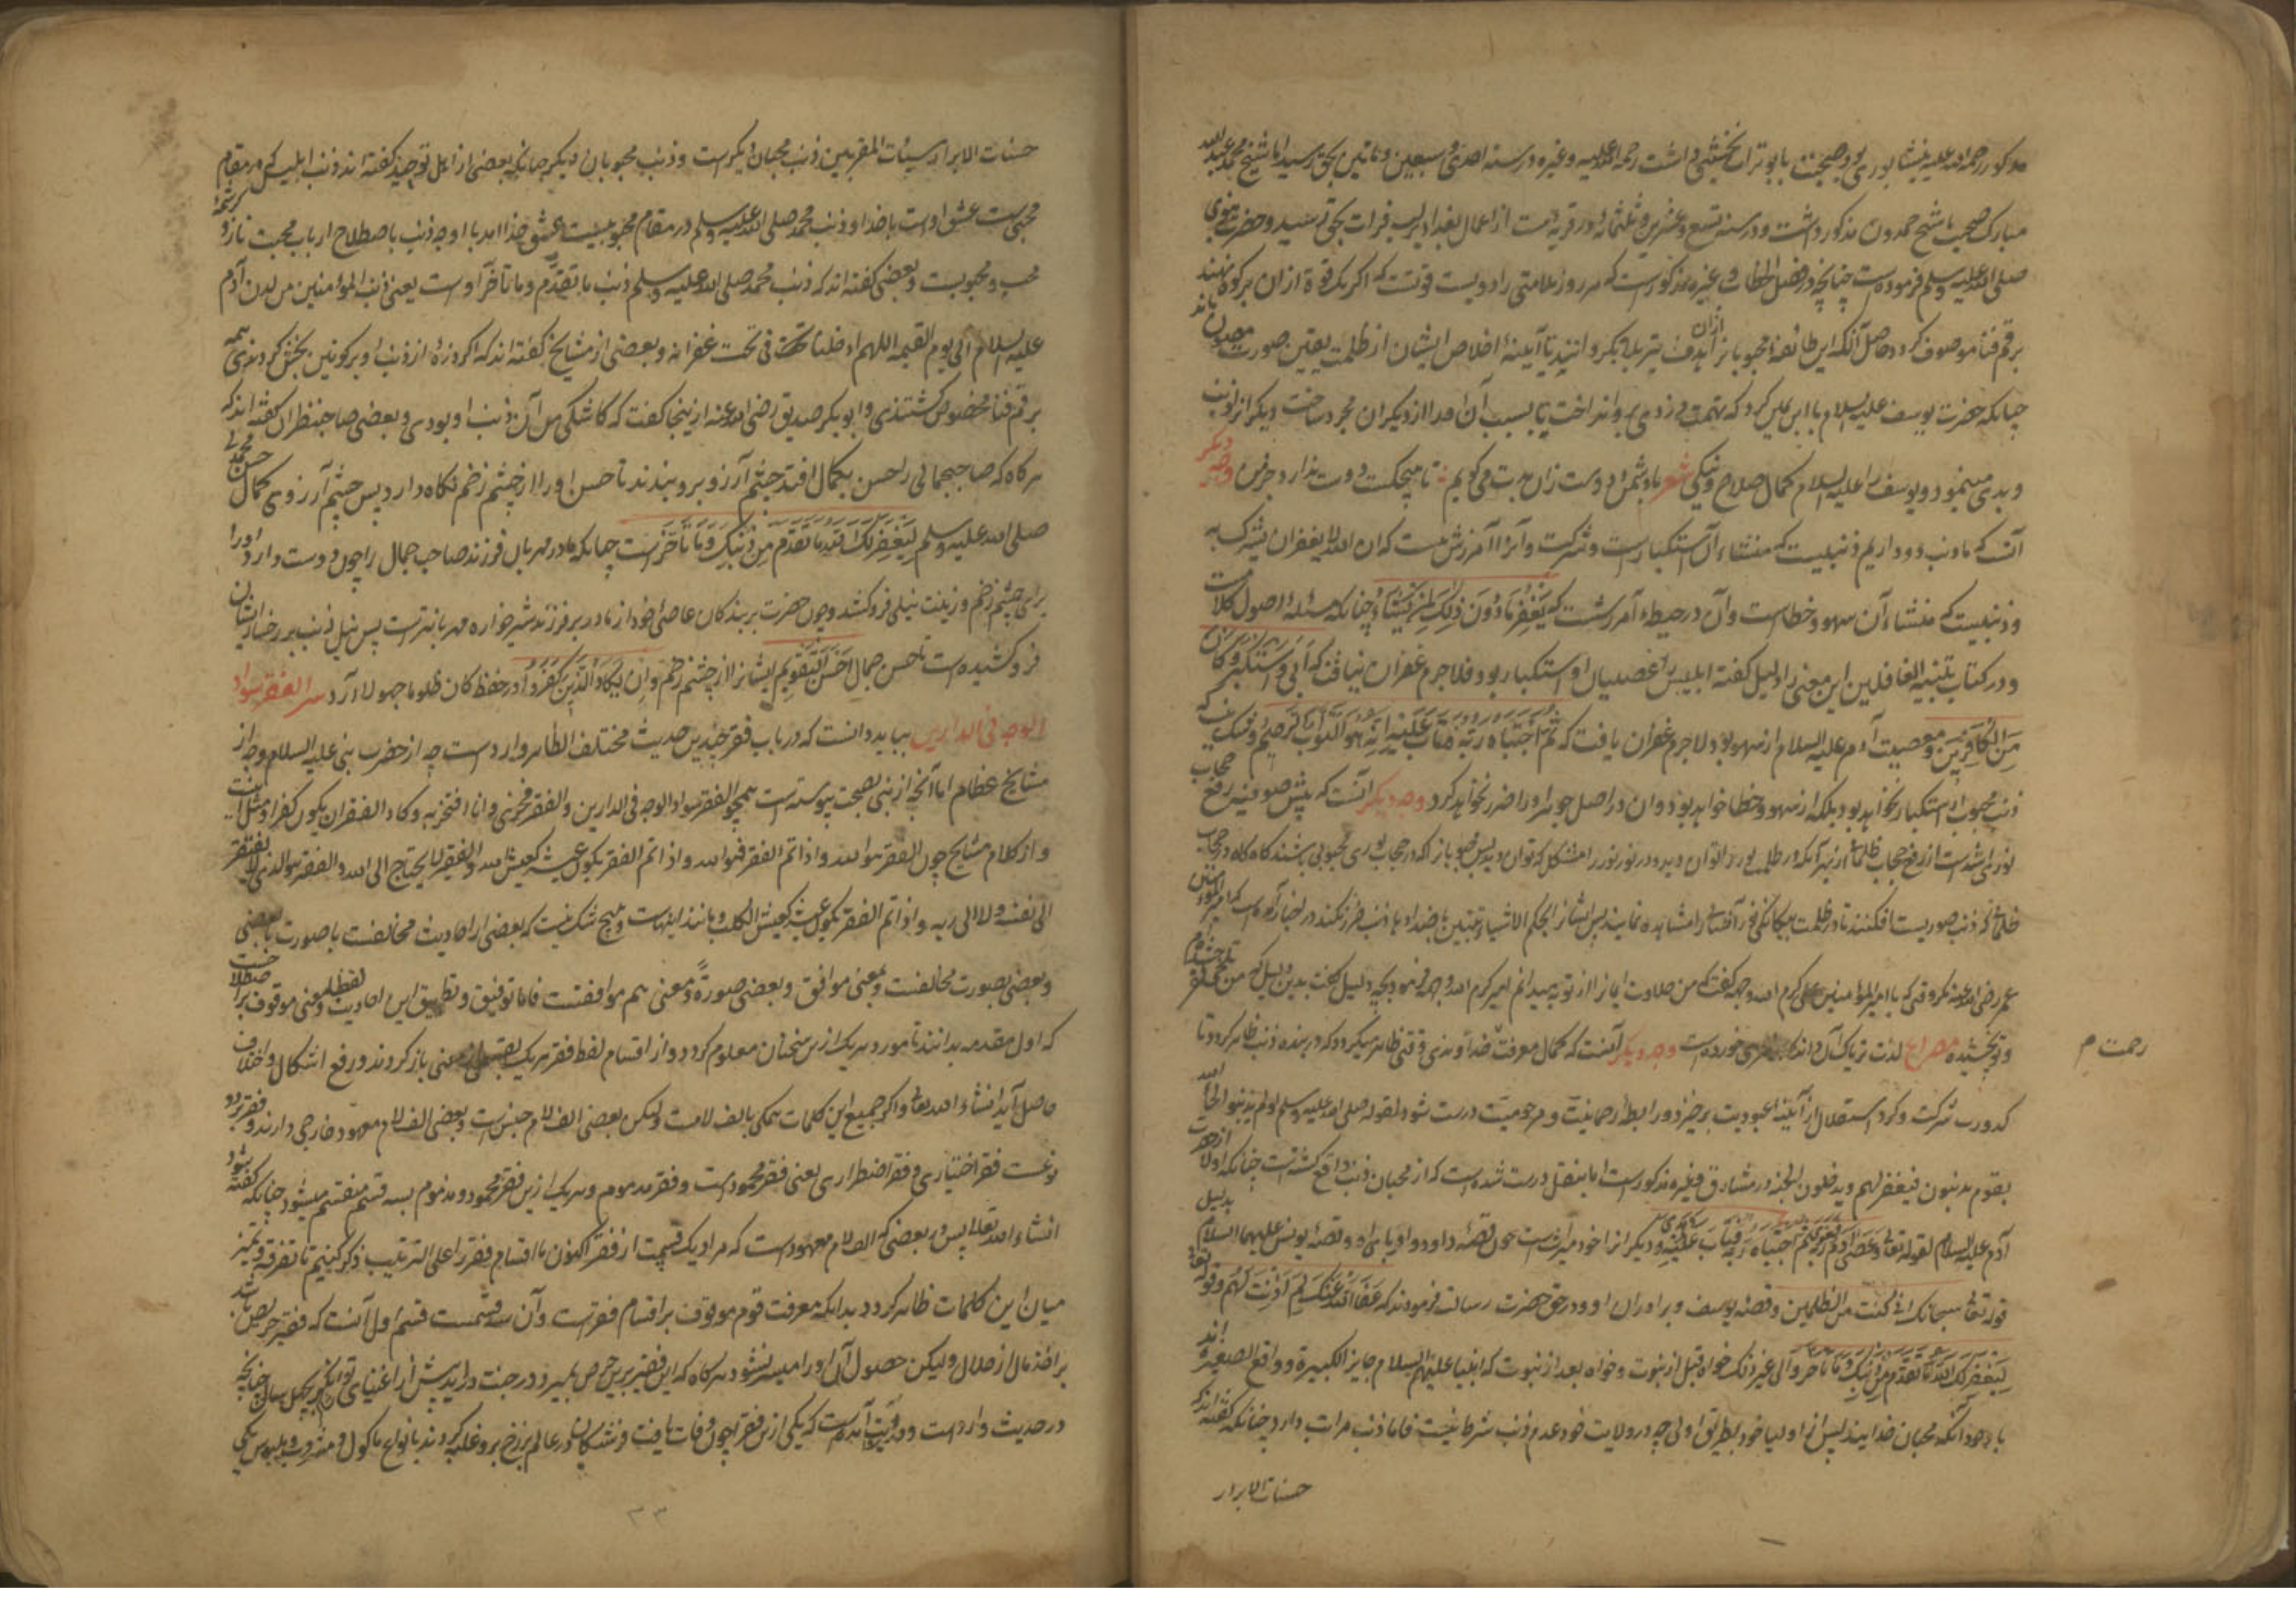 مذکور رحمة الله علیه نیشابوری بود و صحبت با بوتراب نخشبی داشت رحمة الله علیه و غیره و در سنه احدی و سبعین و مأتین بحق رسید اما شیخ محمد عبد الله
مبارک صحبت با شیخ حمدون مذکور داشت و در سنه تسع و عشرین و ثلثمائه در قریه‌ست از اعمال بغداد بر لب فرات بحق رسید و حضرت نبوی
صلی الله علیه و سلم فرموده است چنانچه در فصل الخطاب و غیره مذکور است که هر روز ملامتی را دویست قوتست که اگر یک قوة از ان بر کوه نهند
برقم فنا موصوف گردد حاصل آنکه این طائفهٔ محبوبانرا از ان هدف تیر بلا بگردانید تا آیینهٔ اخلاص ایشان از ظلمت یقین صورت مصون ماند
چنانکه حضرت یوسف علیه السلام با ابن یامین کرد که تهمت دزدی بر وی انداخت تا بسبب آن او را از دیگران مجرد ساخت دیگر از ذنب
و بدی مینمود و یوسف را علیه السلام کمال صلاح و نیکی شعر با دشمن و دوست زان بدت می‌گویم : تا هیچکست دوست ندارد جز من وجه دیگر
آنست که ما ذنب دو داریم ذنبیست که منشاء آن استکبار است و شرکت و آنرا آمرزش نیست که ان الله لا یغفر ان یشرک به
و ذنبیست که منشاء آن سهو و خطاست و آن در حیطهٔ آمرزشست که یَغْفِرُ مَا دُونَ ذٰلِکَ لِمَنْ یَشَاءُ چنانکه مسئلهٔ اصول کلامست
و در کتاب تنبیه الغافلین این معنی را دلیل گفته ابلیس را عصیان او استکبار بود فلاجرم غفران نیافت که اَبیٰ وَاسْتَکْبَرَ وَ کَانَ
مِنَ الْکَافِرِینَ و معصیت آدم علیه السلام از سهو بود لاجرم غفران یافت که ثُمَّ اجْتَبَاهُ رَبُّهُ فَتَابَ عَلَیْهِ اِنَّهُ هُوَ التَّوَّابُ الرَّحِیمُ و شک نیست که
ذنب محبوب از استکبار نخواهد بود بلکه از سهو و خطا خواهد بود و ان در اصل جوهر او را ضرر نخواهد کرد وجه دیگر آنست که پیش صوفیه رفع حجاب
نورانی اشد است از رفع حجاب ظلمانی
عمر رضی الله عنه کرد وقتی که با امیر المؤمنین علی کرم الله وجهه گفت که من حلاوت ایمان از تو به میدانم امیر کرم الله وجهه فرمود بچه دلیل گفت بدین دلیل که من
و تو نچشیده مصراع لذت تریاک آن داند که زهری خورده است وجه دیگر آنست که کمال معرفت خداوندی وقتی ظاهر میگردد که در بنده ذنب ظاهر گردد تا
رحمت م
کدورت شرکت و گرد استقلال از آیینهٔ عبودیت برخیزد و رابطهٔ رحمانیت و مرحومیت درست شود لقوله صلی الله علیه و سلم لو لم تذنبوا لجاء الله
بقوم یذنبون فیغفر لهم و یدخلون الجنة و در مشارق و غیره مذکور است اما بنقل درست شده است که از محبان ذنب واقع گشته است چنانکه اولا از حضرت
آدم علیه السلام لقوله تعالی وَ عَصیٰ آدَمُ رَبَّهُ فَغَوَیٰ ثُمَّ اجْتَبَاهُ رَبُّهُ فَتَابَ عَلَیْهِ و دیگر انرا خود میراثست چون قصهٔ داود و اوریا و قصهٔ یونس علیهما السلام بدلیل
قوله تعالی سبحانک انی کنت من الظالمین و قصهٔ یوسف و برادران او و در حق حضرت رسالت فرمودند که عَفَا اللهُ عَنْکَ لِمَ اَذِنْتَ لَهُمْ و قوله تعالی
لِیَغْفِرَ لَکَ اللهُ مَا تَقَدَّمَ مِنْ ذَنْبِکَ وَ مَا تَأَخَّرَ و الی غیر ذلک خواه قبل از نبوت و خواه بعد از نبوت که انبیا علیهم السلام جایز الکبیرة و واقع الصغیره اند
با وجود آنکه محبان خدایند پس از اولیا خود بطریق اولی چه در ولایت خود عدم ذنب شرط نیست فاما ذنب مراتب دارد چنانکه گفته اند که
حسنات الابرار
حسنات الابرار سیئات المقربین ذنب محبان دیگرست و ذنب محبوبان دیگر چنانکه بعضی از اهل توحید گفته اند ذنب ابلیس که در مقام
محبی‌ست عشق اوست با خدا و ذنب محمد صلی الله علیه و سلم در مقام محبوبیت عشق خدا آمد با او چه ذنب باصطلاح ارباب محبت ناز و کرشمهٔ
محب و محبوبست و بعضی گفته اند که ذنب محمد صلی الله علیه و سلم ذنب ما تقدّم و ما تأخر اوست یعنی ذنب المؤمنین من لدن آدم
علیه السلام الی یوم القیمه اللهم ادخلنا تحت فی تحت غفرانه و بعضی از مشایخ گفته اند که اگر ذرهٔ از ذنب او بر کونین بخش کردندی همه
برقم فنا مخصوص گشتندی و ابو بکر صدیق رضی الله عنه ازینجا گفت که کاشکی من آن ذنب او بودمی و بعضی صاحبنظران گفته اند که
هر گاه که صاحبجمالی را حسن بکمال افتد چشم آرزو برو بندند تا حسن او را از چشم زخم نگاه دارد پس چشم آرزوی کمال حسن محمدی
صلی الله علیه و سلم لِیَغْفِرَ لَکَ اللهُ مَا تَقَدَّمَ مِنْ ذَنْبِکَ وَ مَا تَأَخَّرَ است چنانکه مادر مهربان فرزند صاحب جمال را چون دوست دارد او را
برای چشم زخم و زینت نیلی فرو کشد و چون حضرت بر بندگان عاصی خود از مادر بر فرزند شیرخواره مهربانترست پس نیل ذنب بر رخسار ایشان
فرو کشیده است تا حسن جمال اَحْسَنِ التَّقْوِیم ایشانرا از چشم زخم وَ اِنْ یَکَادُ الَّذِینَ کَفَرُوا در حفظ کان ظلوما جهولا آرد سر الفقر سواد
الوجه فی الدارین بباید دانست که در باب فقر چندین حدیث مختلف الظاهر وارد است چه از حضرت نبی علیه السلام و چه از
مشایخ عظام اما آنچه از نبی بصحت پیوسته است همچو الفقر سواد الوجه فی الدارین و الفقر فخری و انا افتخر به و کاد الفقر ان یکون کفرا و مثل اینست
و از کلام مشایخ چون الفقر هو الله و اذا تم الفقر فهو الله و اذا تم الفقر یکون عیشه کعیش الله و الفقیر لا یحتاج الی الله و الفقر هو الذی لا یفتقر
الی نفسه و لا الی ربه و اذا تم الفقر یکون عیشه کعیش الکلب و مانند اینهاست و هیچ شک نیست که بعضی از احادیث مخالفست با صورت بعضی
و بعضی بصورت مخالفست و بمعنی موافق و بعضی صورةً و معنی هم موافقست فاما توفیق و تطبیق این احادیث لفظا و معنی موقوف بر اصطلاحست
که اول مقدمه بدانند تا مورد هر یک ازین سخنان معلوم گردد و از اقسام لفظ فقر هر یک بقسمی از معنی باز گردند و رفع اشکال و اختلاف
حاصل آید انشاء الله تعالی و اگر جمیع این کلمات همگی بالف لامست ولیکن بعضی الف لام جنس‌ست و بعضی الف لام معهود خارجی دارند و فقر بر دو
نوعست فقر اختیاری و فقر اضطراری یعنی فقر محمودست و فقر مذموم و هر یک ازین فقر محمود و مذموم بسه قسم منقسم میشود چنانکه گفته شود
انشاء الله تعالی پس در بعضی که الف لام معهودست که مراد یک قسمست از فقر اکنون ما اقسام فقر را علی الترتیب ذکر کنیم تا تفرقه و تمیز
میان این کلمات ظاهر گردد بدانکه معرفت قوم موقوف بر اقسام فقرست و آن سه قسمست قسم اول آنست که فقیر حریص باشد
بر اخذ مال از حلال ولیکن حصول آن او را میسر نشود هر گاه که این فقیر برین حرص بمیرد در جنت در آید پیش از اغنیای توانگر بچهل سال چنانچه
در حدیث وارد است و در روایت آمده است که یکی ازین فقرا چون وفات یافت فرشتگان در عالم برزخ برو غلبه کردند بانواع ماکول و مشروب و ملبوس یکی
۳۳